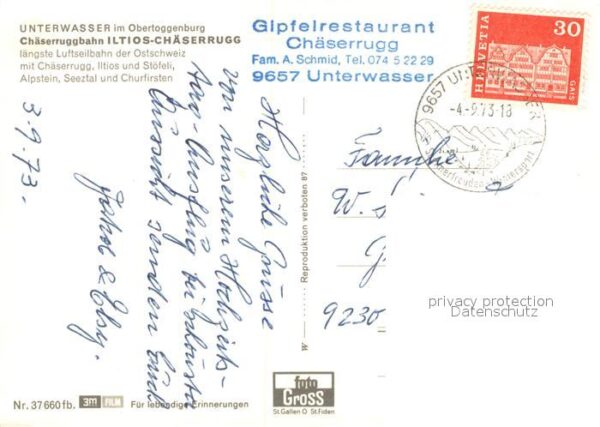 UNTERWASSER im Obertoggenburg
Chäserruggbahn ILTIOS-CHÄSERRUGG
längste Luftseilbahn der Ostschweiz
mit Chäserrugg, Iltios und Stöfeli,
Alpstein, Seeztal und Churfirsten
Gipfelrestaurant
Chäserrugg
Fam. A. Schmid, Tel. 074 5 22 29
9657 Unterwasser
HELVETIA
30
GAIS
9657 UNTERWASSER
-4.-9.73-18
3.9.73.
Herzliche Grüsse
von unserem Hochzeits-
Aussicht senden Euch
Familie
W. S
G
9230
W
Reproduktion verboten 87
privacy protection
Datenschutz
foto
GROSS
St.Gallen O St.Fiden
Nr. 37660fb. 3M FILM Für lebendige Erinnerungen